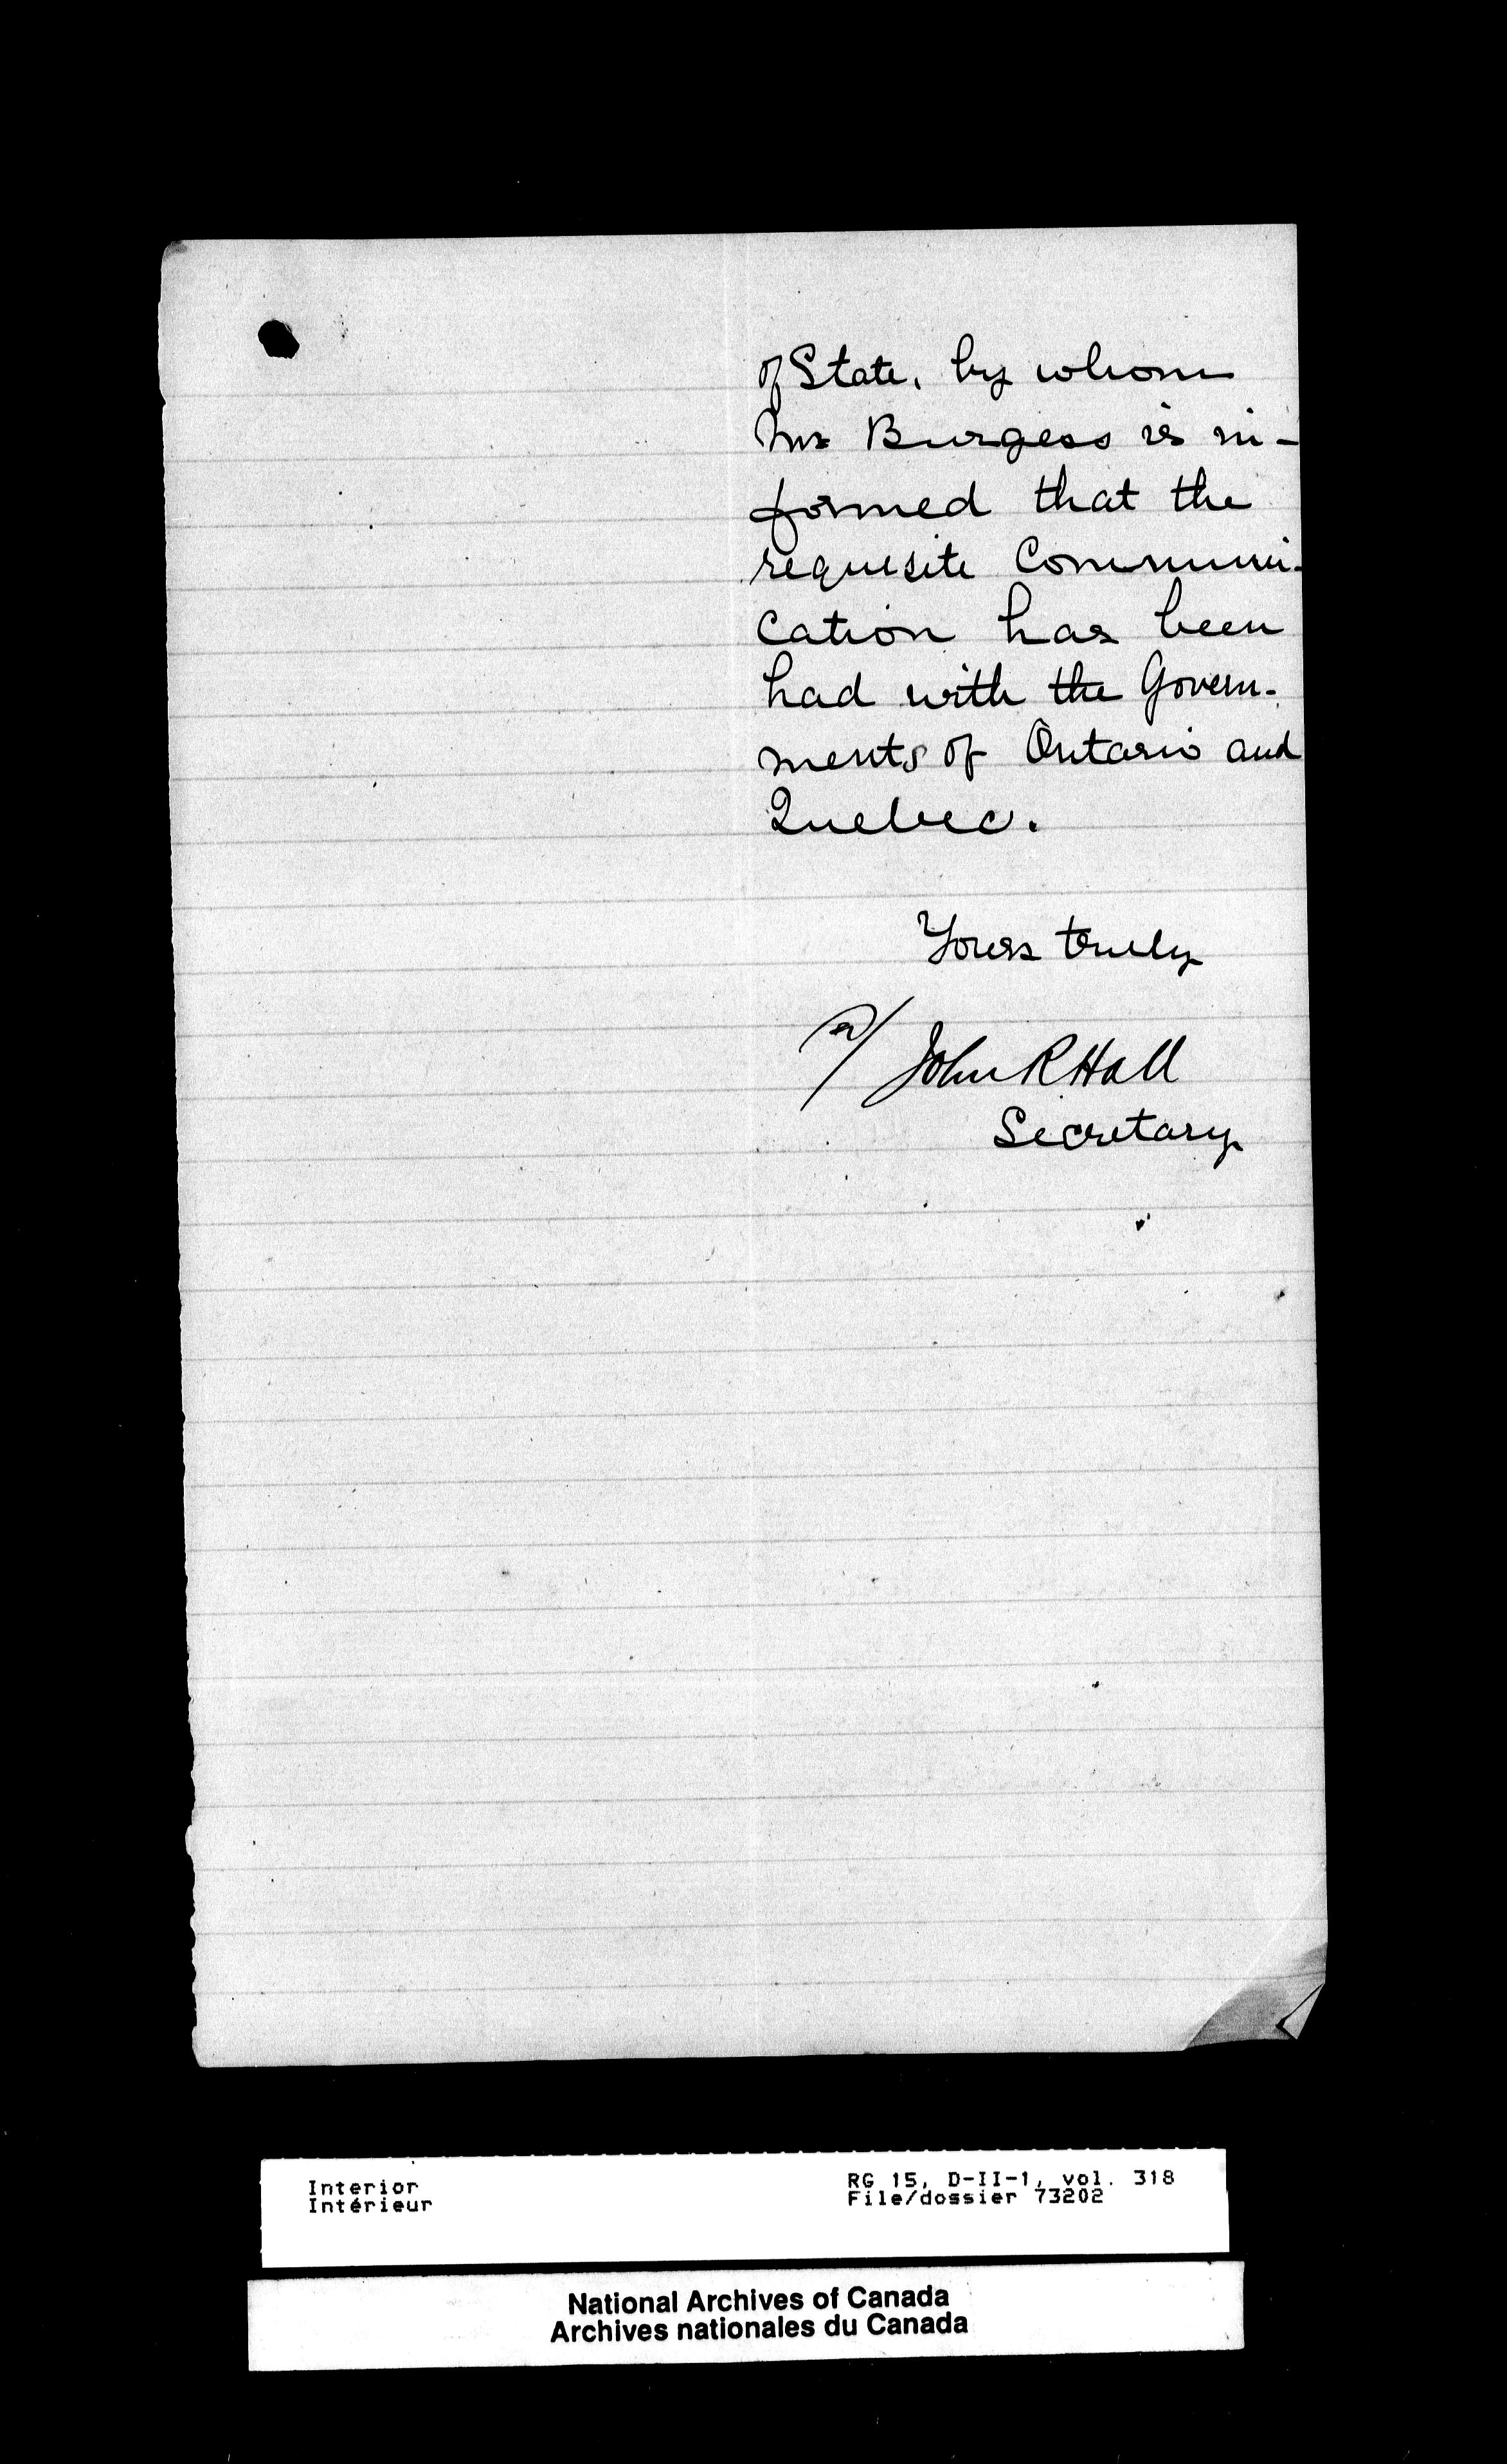 of State, by whom
Mr Burgess is in-
formed that the
requisite Communi-
cation has been
had with the Govern-
ments of Ontario and
Quebec.
Yours truly
John R Hall
Secretary
Interior
Intérieur
RG 15, D-II-1, vol. 318
File/dossier 73202
National Archives of Canada
Archives nationales du Canada